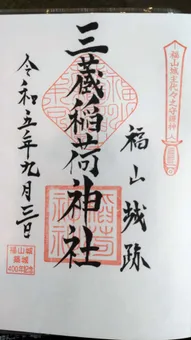 福山城主代々之守護神
福山城跡
三蔵稲荷神社
令和五年九月三日
福山城
築城
400年記念